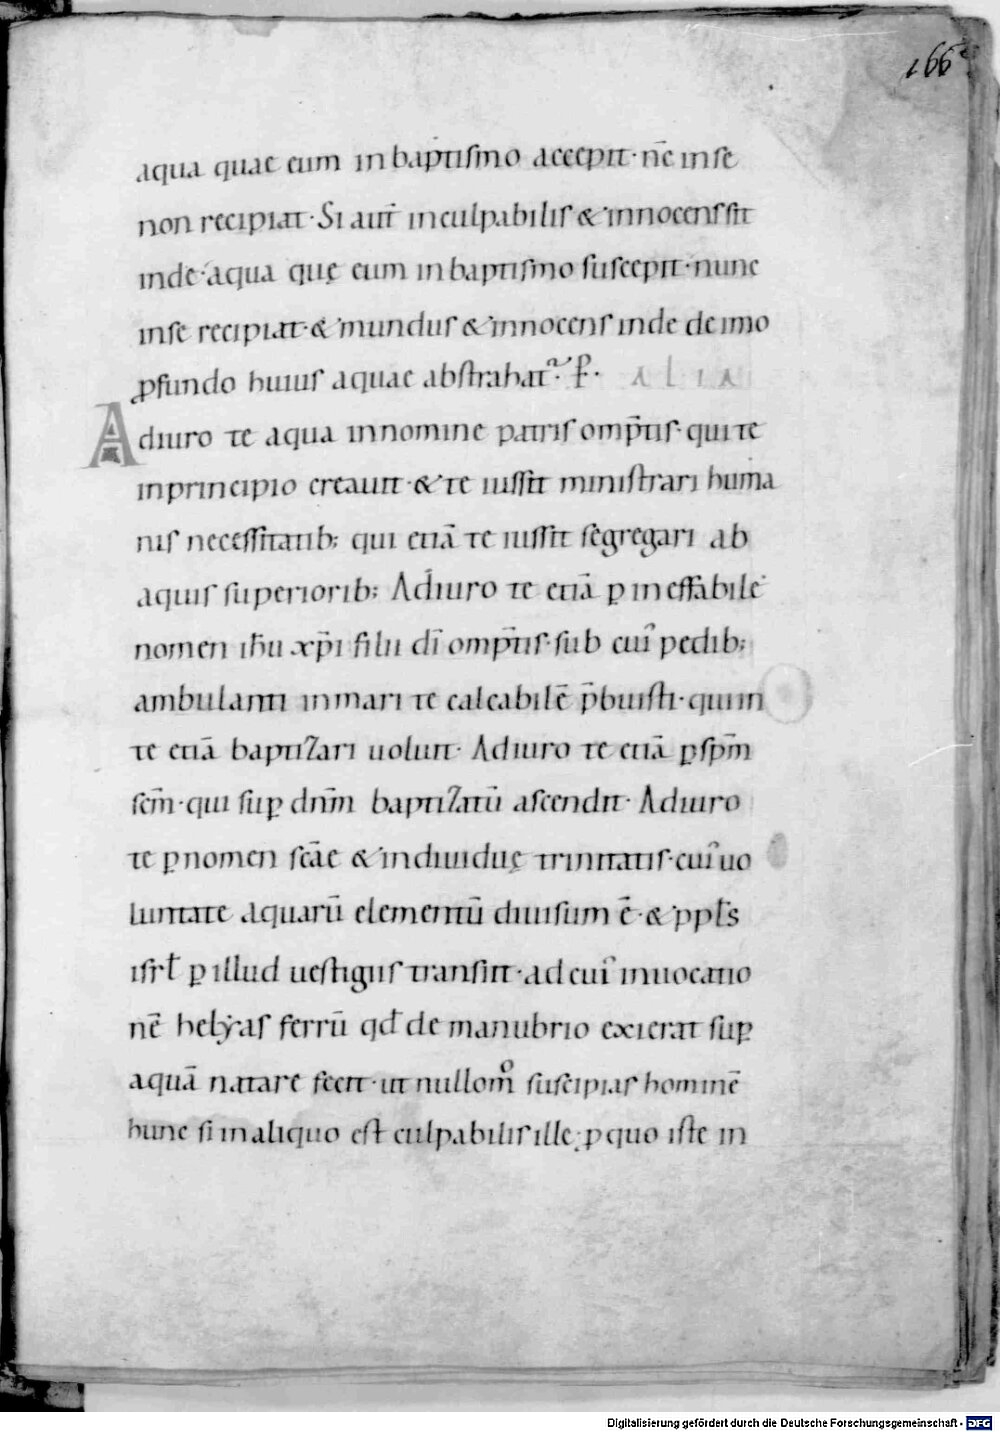 166
aqua quae eum in baptismo accepit· nc̄ in se
non recipiat· Si aut̄ inculpabilis & innocens sit
inde· aqua quę eum in baptismo suscepit· nunc
in se recipiat· & mundus & innocens inde de imo
ꝓfundo huius aquae abstrahat᷑·  ALIA
Adiuro te aqua in nomine patris omp̄tis· qui te
in principio creauit· & te iussit ministrari huma
nis necessitatib; qui etiā te iussit segregari ab
aquis superiorib; Adiuro te etiā ꝑ ineffabile
nomen ih̄u xp̄i filii dī omp̄tis· sub cui' pedib;
ambulanti in mari te calcabilē p̄buisti· qui in
te etiā baptizari uoluit· Adiuro te etiā ꝑ sp̄m
sc̄m· qui suꝑ dn̄m baptizatū ascendit· Adiuro
te ꝑ nomen sc̄ae & indiuiduę trinitatis· cui' uo
luntate aquarū elementū diuisum ē· & ppl̄s
isrl̄ ꝑ illud uestigiis transiit· ad cui' inuocatio
nē helẏas ferrū qd̄ de manubrio exierat suꝑ
aquā natare fecit· ut nullom̊ suscipias hominē
hunc si in aliquo est culpabilis ille· ꝑ quo iste in
Digitalisierung gefördert durch die Deutsche Forschungsgemeinschaft - DFG